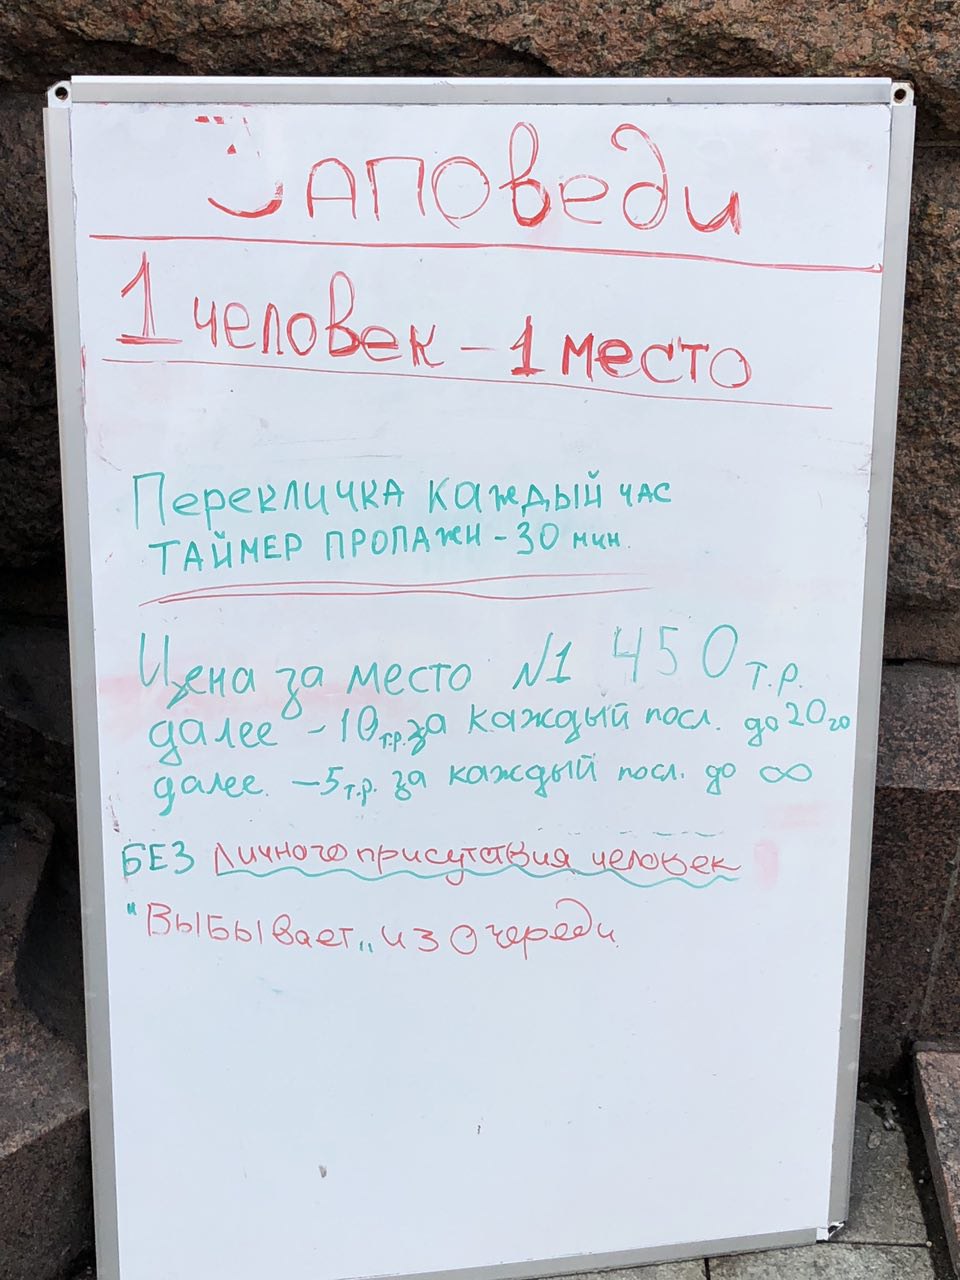 Заповеди
1 человек - 1 место
Перекличка каждый час
Таймер пропажи - 30 мин.
Цена за место №1 450 т.р.
далее - 10 т.р. за каждый посл. до 20го
далее. - 5 т.р. за каждый посл. до ∞
БЕЗ личного присутствия человек
"Выбывает„ из очереди.